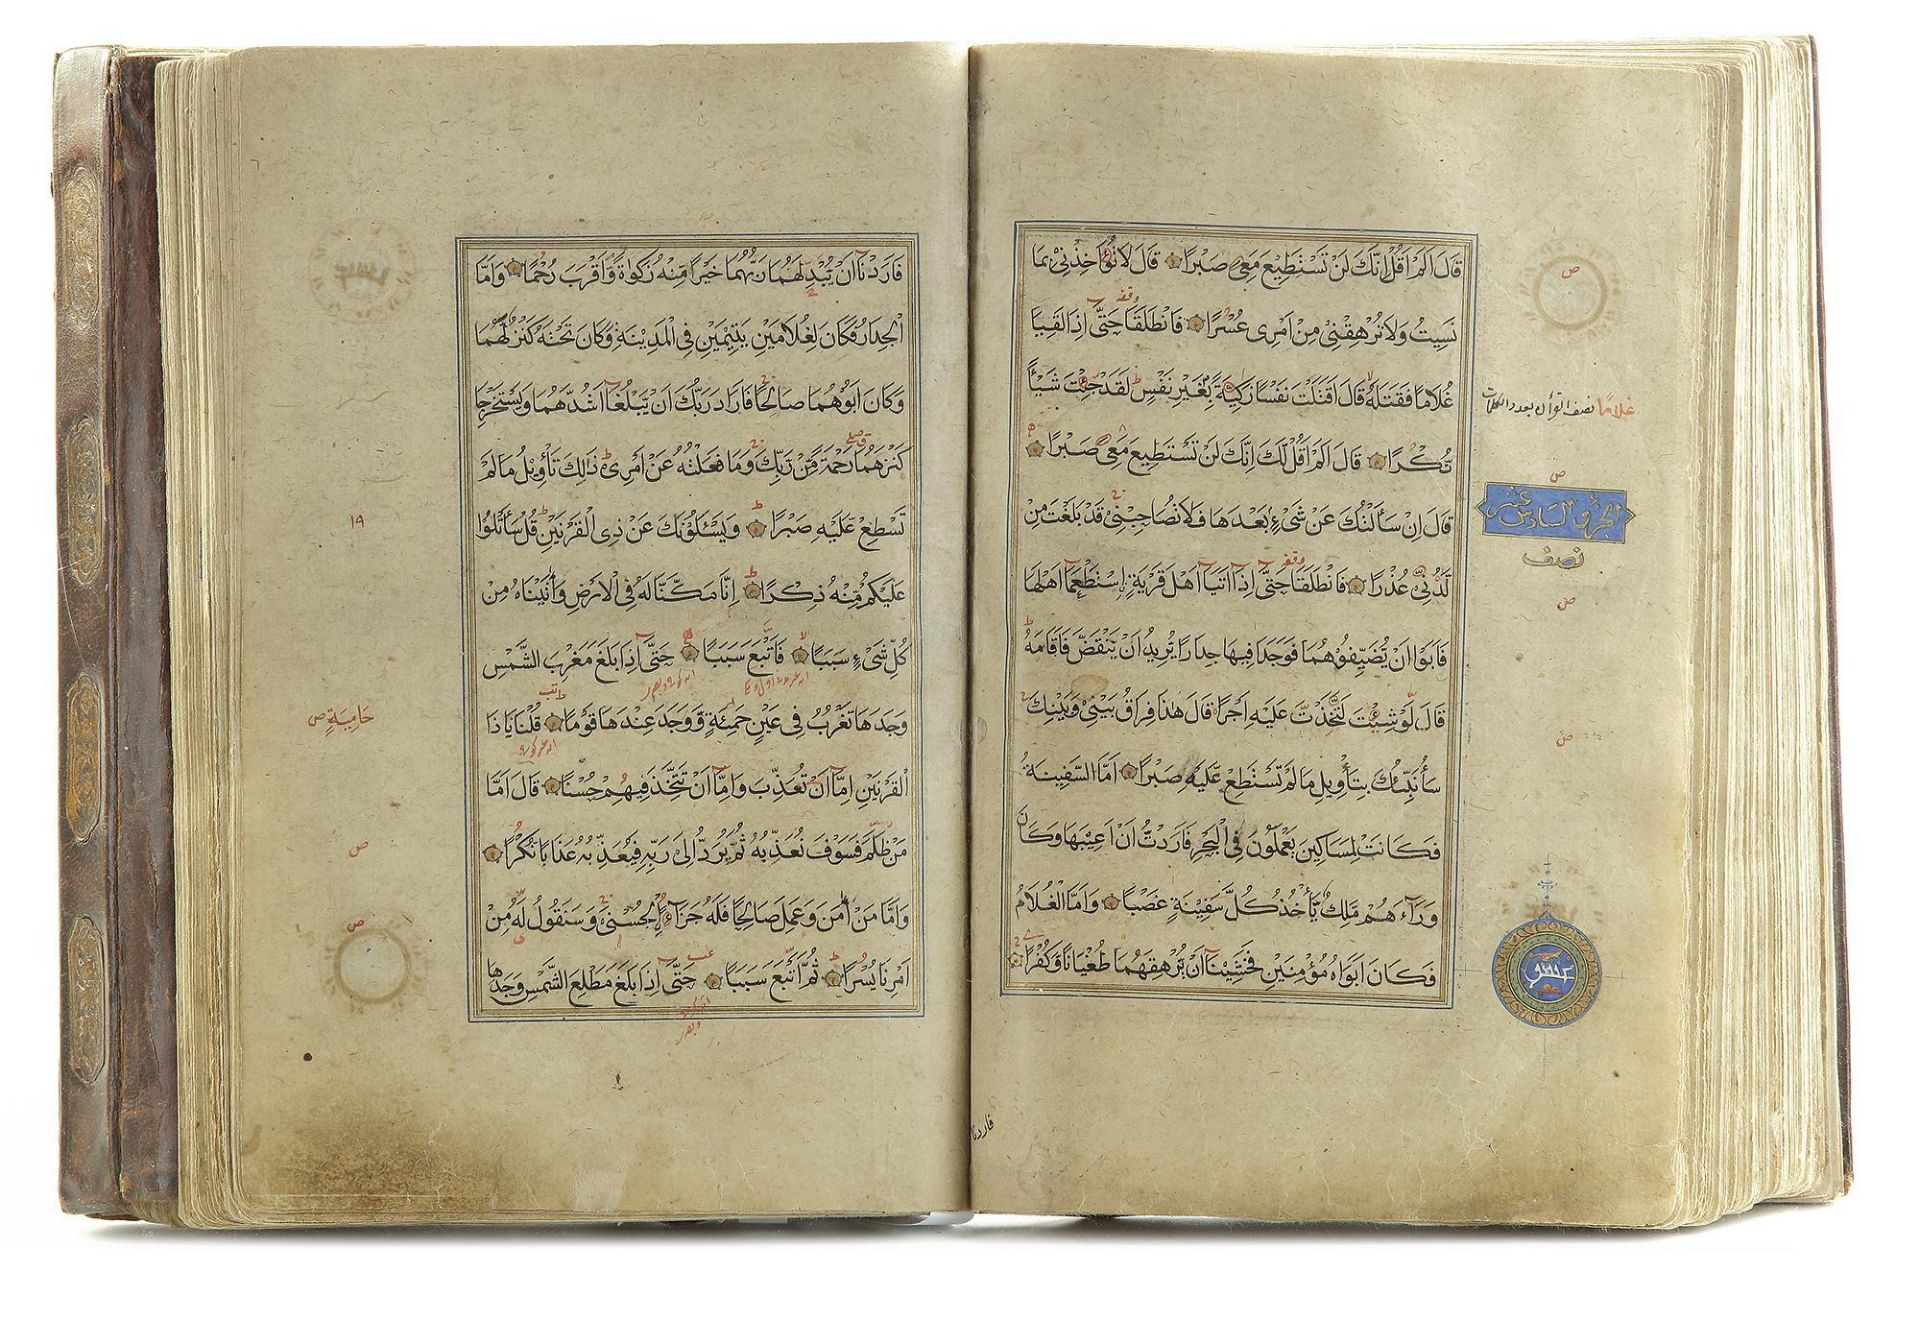 قَالَ اَلَمْ اَقُلْ اِنَّكَ لَنْ تَسْتَطِيعَ مَعِىَ صَبْرًا قَالَ لَا تُؤَاخِذْنِى بِمَا
نَسِيتُ وَلَا تُرْهِقْنِى مِنْ اَمْرِى عُسْرًا فَانْطَلَقَا حَتَّى اِذَا لَقِيَا
غُلَامًا فَقَتَلَهُ قَالَ اَقَتَلْتَ نَفْسًا زَكِيَّةً بِغَيْرِ نَفْسٍ لَقَدْ جِئْتَ شَيْأً
نُكْرًا قَالَ اَلَمْ اَقُلْ لَكَ اِنَّكَ لَنْ تَسْتَطِيعَ مَعِىَ صَبْرًا
قَالَ اِنْ سَاَلْتُكَ عَنْ شَىْءٍ بَعْدَهَا فَلَا تُصَاحِبْنِى قَدْ بَلَغْتَ مِنْ
لَدُنِّى عُذْرًا فَانْطَلَقَا حَتَّى اِذَا اَتَيَا اَهْلَ قَرْيَةٍ اِسْتَطْعَمَا اَهْلَهَا
فَاَبَوْا اَنْ يُضَيِّفُوهُمَا فَوَجَدَا فِيهَا جِدَارًا يُرِيدُ اَنْ يَنْقَضَّ فَاَقَامَهُ
قَالَ لَوْ شِئْتَ لَتَّخَذْتَ عَلَيْهِ اَجْرًا قَالَ هٰذَا فِرَاقُ بَيْنِى وَبَيْنِكَ
سَاُنَبِّئُكَ بِتَأْوِيلِ مَا لَمْ تَسْتَطِعْ عَلَيْهِ صَبْرًا اَمَّا السَّفِينَةُ
فَكَانَتْ لِمَسَاكِينَ يَعْمَلُونَ فِى الْبَحْرِ فَاَرَدْتُ اَنْ اَعِيبَهَا وَكَانَ
وَرَآءَهُمْ مَلِكٌ يَأْخُذُ كُلَّ سَفِينَةٍ غَصْبًا وَاَمَّا الْغُلَامُ
فَكَانَ اَبَوَاهُ مُؤْمِنَيْنِ فَخَشِينَا اَنْ يُرْهِقَهُمَا طُغْيَانًا وَكُفْرًا
فاردنا
ص
غلامًا نصف القرآن بعدد الكلمات
ص
الجزؤ السادس عشر
نصف
ص
ص
فَاَرَدْنَا اَنْ يُبْدِلَهُمَا رَبُّهُمَا خَيْرًا مِنْهُ زَكٰوةً وَاَقْرَبَ رُحْمًا وَاَمَّا
الْجِدَارُ فَكَانَ لِغُلَامَيْنِ يَتِيمَيْنِ فِى الْمَدِينَةِ وَكَانَ تَحْتَهُ كَنْزٌ لَهُمَا
وَكَانَ اَبُوهُمَا صَالِحًا فَاَرَادَ رَبُّكَ اَنْ يَبْلُغَا اَشُدَّهُمَا وَيَسْتَخْرِجَا
كَنْزَهُمَا رَحْمَةً مِنْ رَبِّكَ وَمَا فَعَلْتُهُ عَنْ اَمْرِى ذٰلِكَ تَأْوِيلُ مَا لَمْ
تَسْطِعْ عَلَيْهِ صَبْرًا وَيَسْئَلُونَكَ عَنْ ذِى الْقَرْنَيْنِ قُلْ سَاَتْلُوا
عَلَيْكُمْ مِنْهُ ذِكْرًا اِنَّا مَكَّنَّا لَهُ فِى الْاَرْضِ وَاٰتَيْنَاهُ مِنْ
كُلِّ شَىْءٍ سَبَبًا فَاَتْبَعَ سَبَبًا حَتَّى اِذَا بَلَغَ مَغْرِبَ الشَّمْسِ
وَجَدَهَا تَغْرُبُ فِى عَيْنٍ حَمِئَةٍ وَوَجَدَ عِنْدَهَا قَوْمًا قُلْنَا يَا ذَا
الْقَرْنَيْنِ اِمَّا اَنْ تُعَذِّبَ وَاِمَّا اَنْ تَتَّخِذَ فِيهِمْ حُسْنًا قَالَ اَمَّا
مَنْ ظَلَمَ فَسَوْفَ نُعَذِّبُهُ ثُمَّ يُرَدُّ اِلَى رَبِّهِ فَيُعَذِّبُهُ عَذَابًا نُكْرًا
وَاَمَّا مَنْ اٰمَنَ وَعَمِلَ صَالِحًا فَلَهُ جَزَآءً الْحُسْنَى وَسَنَقُولُ لَهُ مِنْ
اَمْرِنَا يُسْرًا ثُمَّ اَتْبَعَ سَبَبًا حَتَّى اِذَا بَلَغَ مَطْلِعَ الشَّمْسِ وَجَدَهَا
١٩
حَامِيَةٍ ص
ص
ص